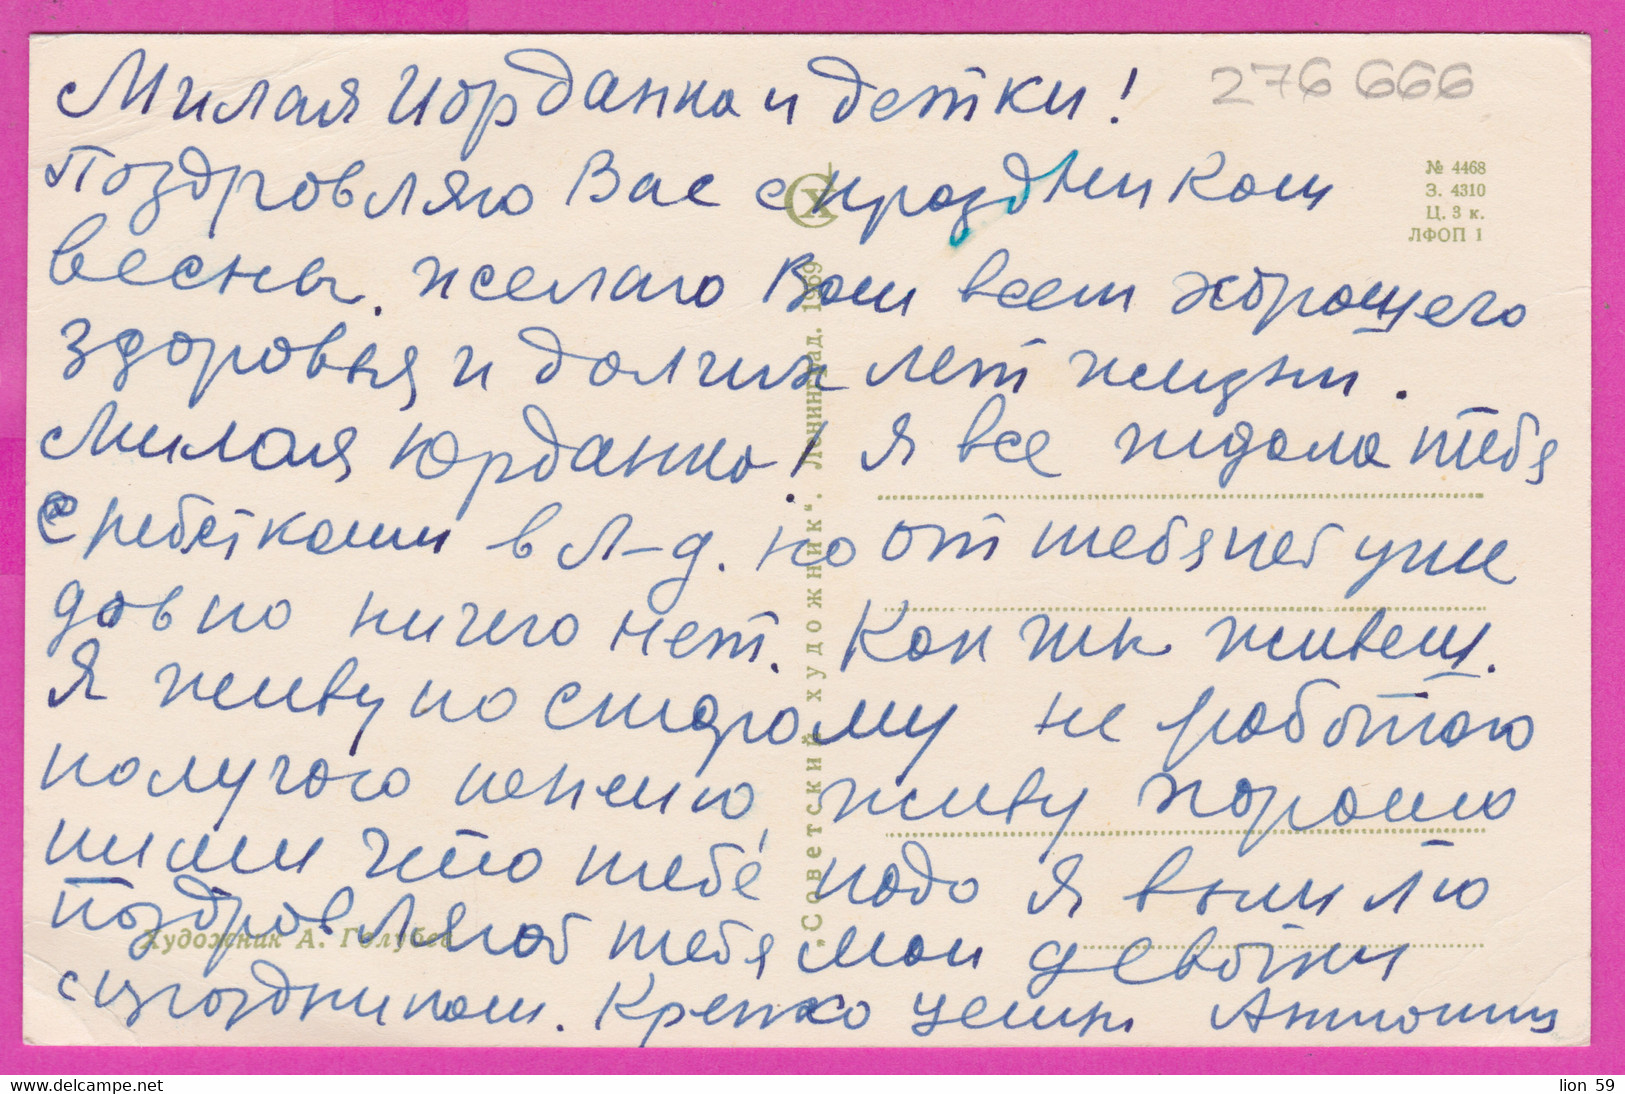 Милая Иорданка и детки!
276 666
Поздровляю Вас с праздником
№ 4468
З. 4310
Ц. 3 к.
ЛФОП 1
весны. желаю Вам всем хорошего
здоровья и долгих лет жизни.
Милая Юрданка! Я все ждала тебя
с ребятками в Л-д. но от тебя уже
давно ничего нет. Как ты живеш.
Я живу по старому не работаю
получаю пенсию, живу хорошо
пиши что тебе надо я вышлю
поздровляют тебя мои девочки
Художник А. Голубев
с праздником. Крепко целую Антонина
„Советский художник“. Ленинград. 1969
lion 59
www.delcampe.net